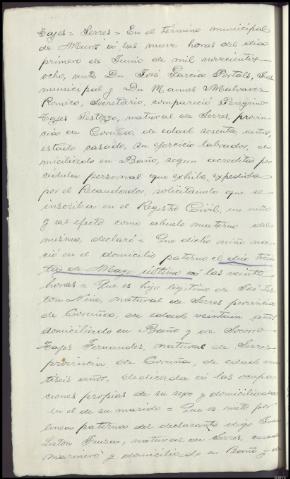 Lajes = Serres = En el término municipal
de Muros á las nueve horas del día
primero de Junio de mil novecientos
ocho, ante Dn José García Juez
municipal y Dn Manuel Malvarez
Romero, Secretario, compareció Peregrino
Lajes natural de Serres, provin
cia de Coruña de edad sesenta años,
estado casado, su ejercicio labrador, do
miciliado en Baño, segun acredita por
cédula personal que exhibe, expedida
por el Recaudador, solicitando que se
inscriba en el Registro Civil, un niño
y al efecto como abuelo materno del
mismo, declaró = Que dicho niño na
ció en el domicilio paterno el día trein
ta de Mayo último á las veinte
horas = Que es hijo legítimo de
natural de Serres provincia
de Coruña, de edad veintiun años
domiciliado en Baño y de
Lajes Fernandez, natural de Serres
provincia de Coruña, de edad
años, dedicada á las ocupa
ciones propias de su sexo y domiciliada
en el de su marido = Que es nieto por
linea paterna del declarante digo
natural de Serres, casado
marinero y domiciliado en Baño y de